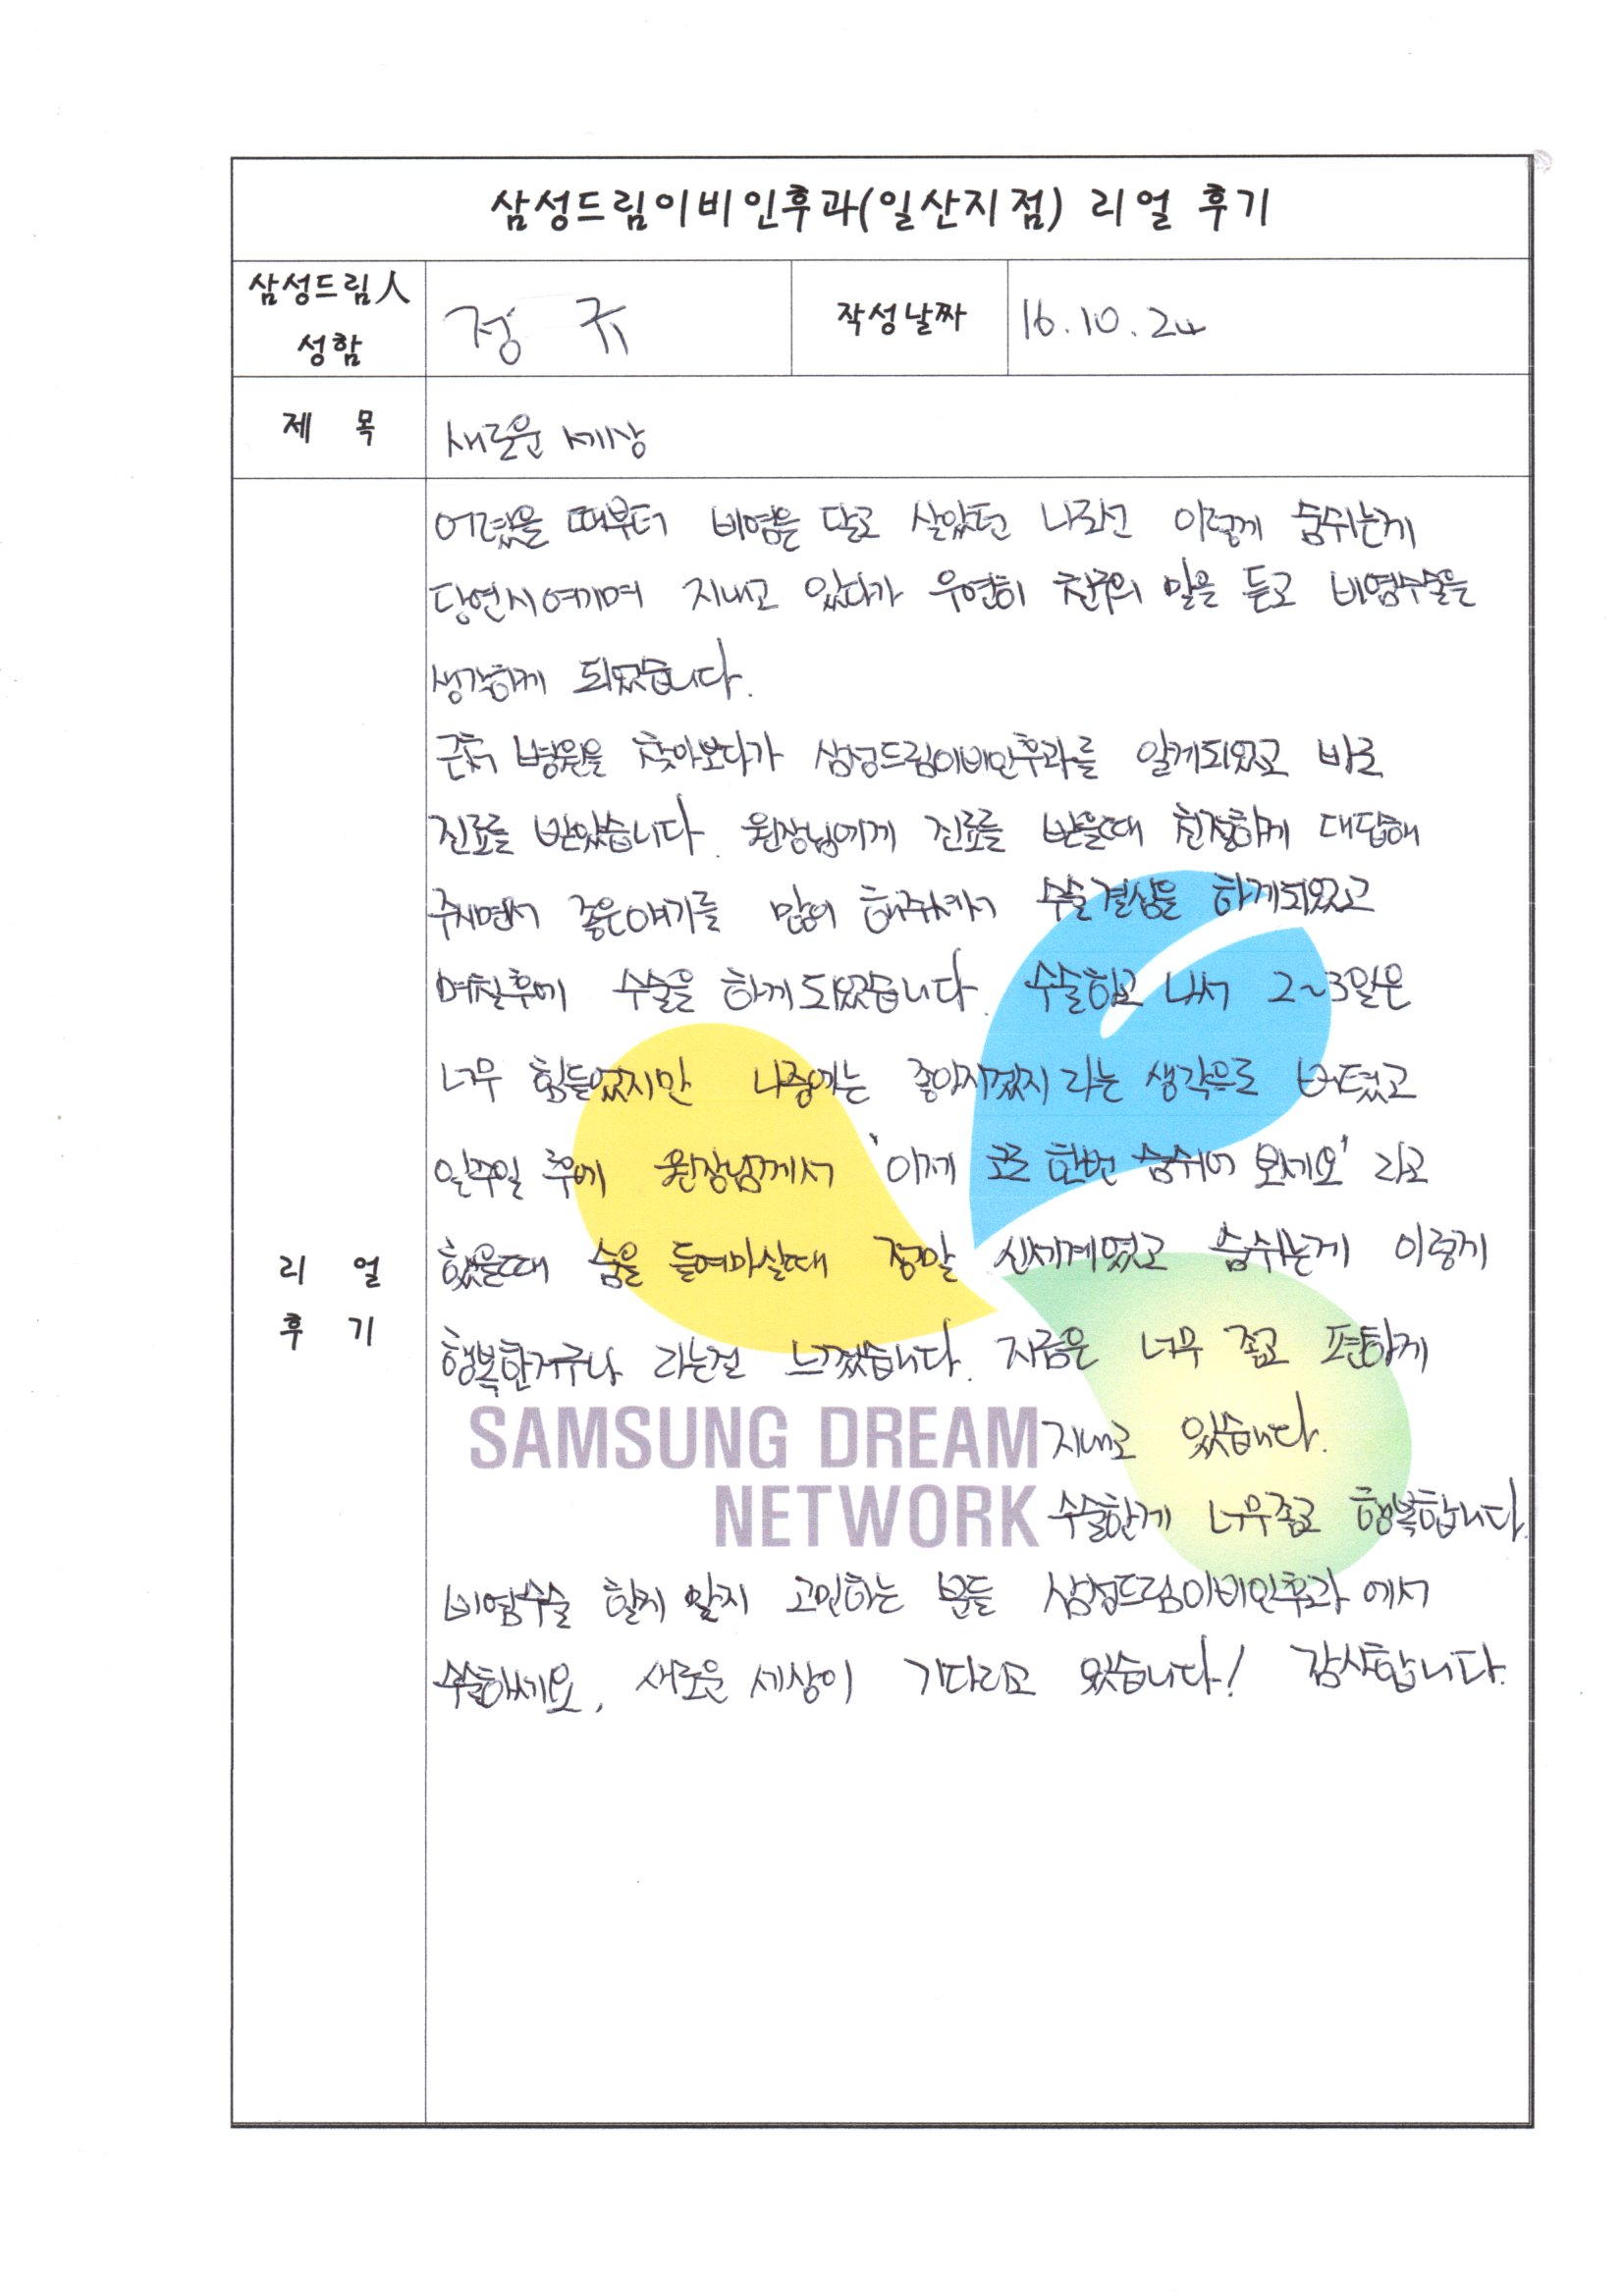 삼성드림이비인후과(일산지점) 리얼 후기
삼성드림人
성함
정 규
작성날짜
16.10.24
제 목
새로운 세상
어렸을 때부터 비염을 달고 살았던 나로선 이렇게 숨쉬는게
당연시여기며 지내고 있다가 우연히 친구의 말을 듣고 비염수술을
생각하게 되었습니다.
근처 병원을 찾아보다가 삼성드림이비인후과를 알게되었고 바로
진료를 받았습니다. 원장님에게 진료를 받을때 친절하게 대답해
주시면서 좋은얘기를 많이 해주셔서 수술결심을 하게되었고
며칠후에 수술을 하게되었습니다. 수술하고 나서 2~3일은
너무 힘들었지만 나중에는 좋아지겠지라는 생각으로 버텼고
일주일 후에 원장님께서 '이제 코로 한번 숨쉬어 보세요' 라고
했을때 숨을 들여마실때 정말 신세계였고 숨쉬는게 이렇게
행복한거구나 라는걸 느꼈습니다. 지금은 너무 좋고 편하게
지내고 있습니다.
수술한게 너무좋고 행복합니다.
비염수술 할까 말지 고민하는 분들 삼성드림이비인후과에서
수술하세요, 새로운 세상이 기다리고 있습니다! 감사합니다.
리 얼
후 기
SAMSUNG DREAM
NETWORK